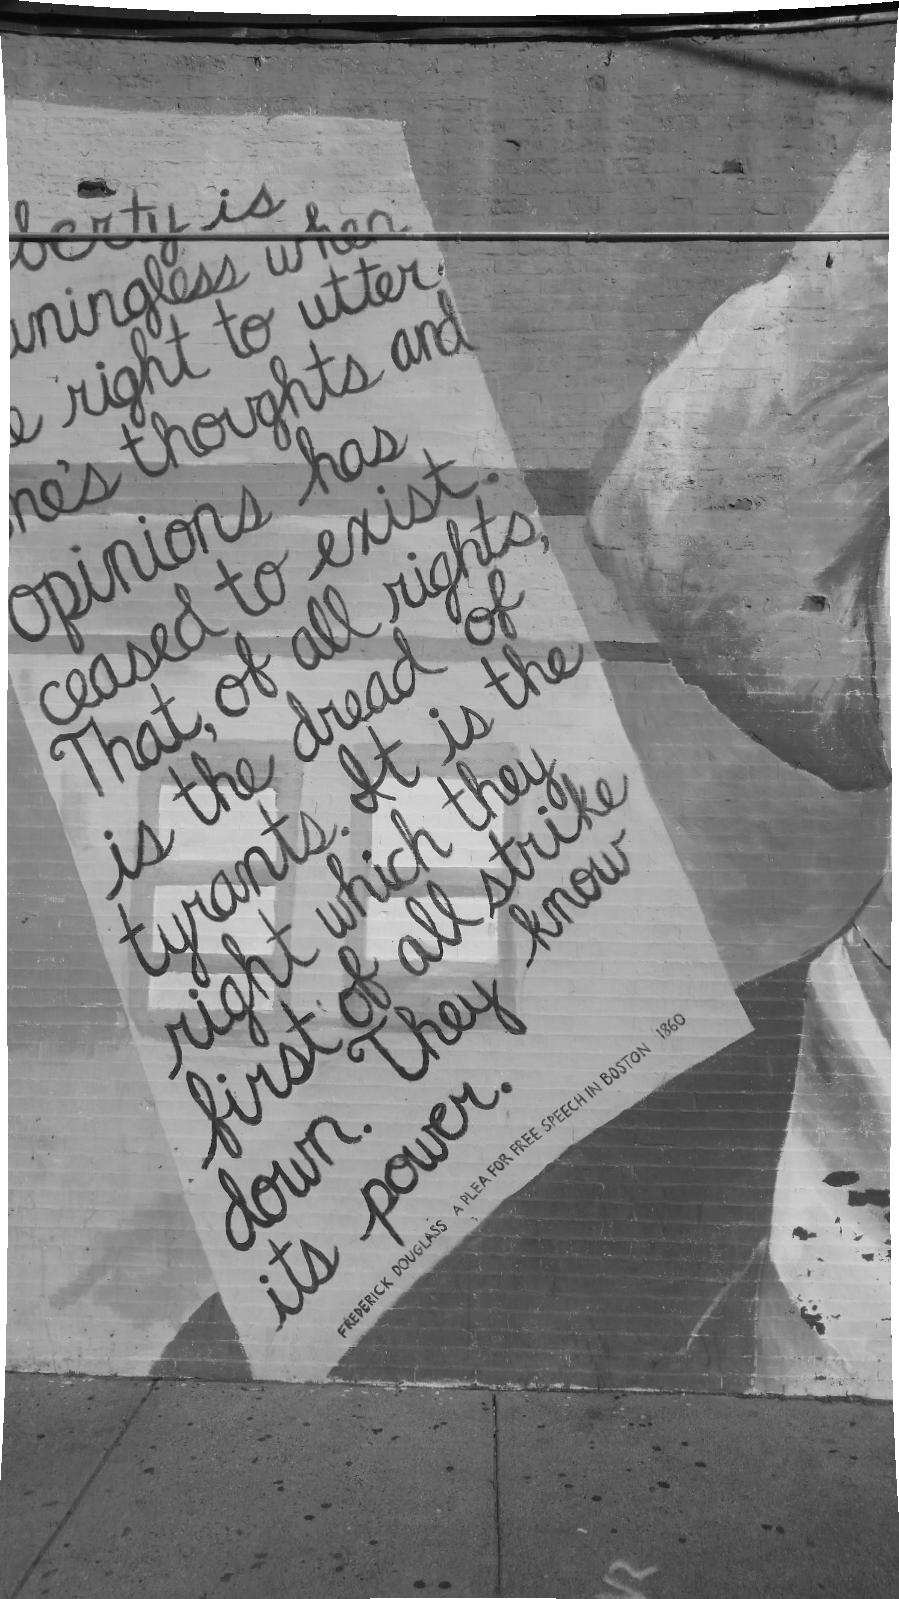 berty is
uningless when
e right to utter
ne's thoughts and
opinions has
ceased to exist.
That, of all rights,
is the dread of
tyrants. It is the
right which they
first of all strike
down. They know
its power.
FREDERICK DOUGLASS A PLEA FOR FREE SPEECH IN BOSTON 1860